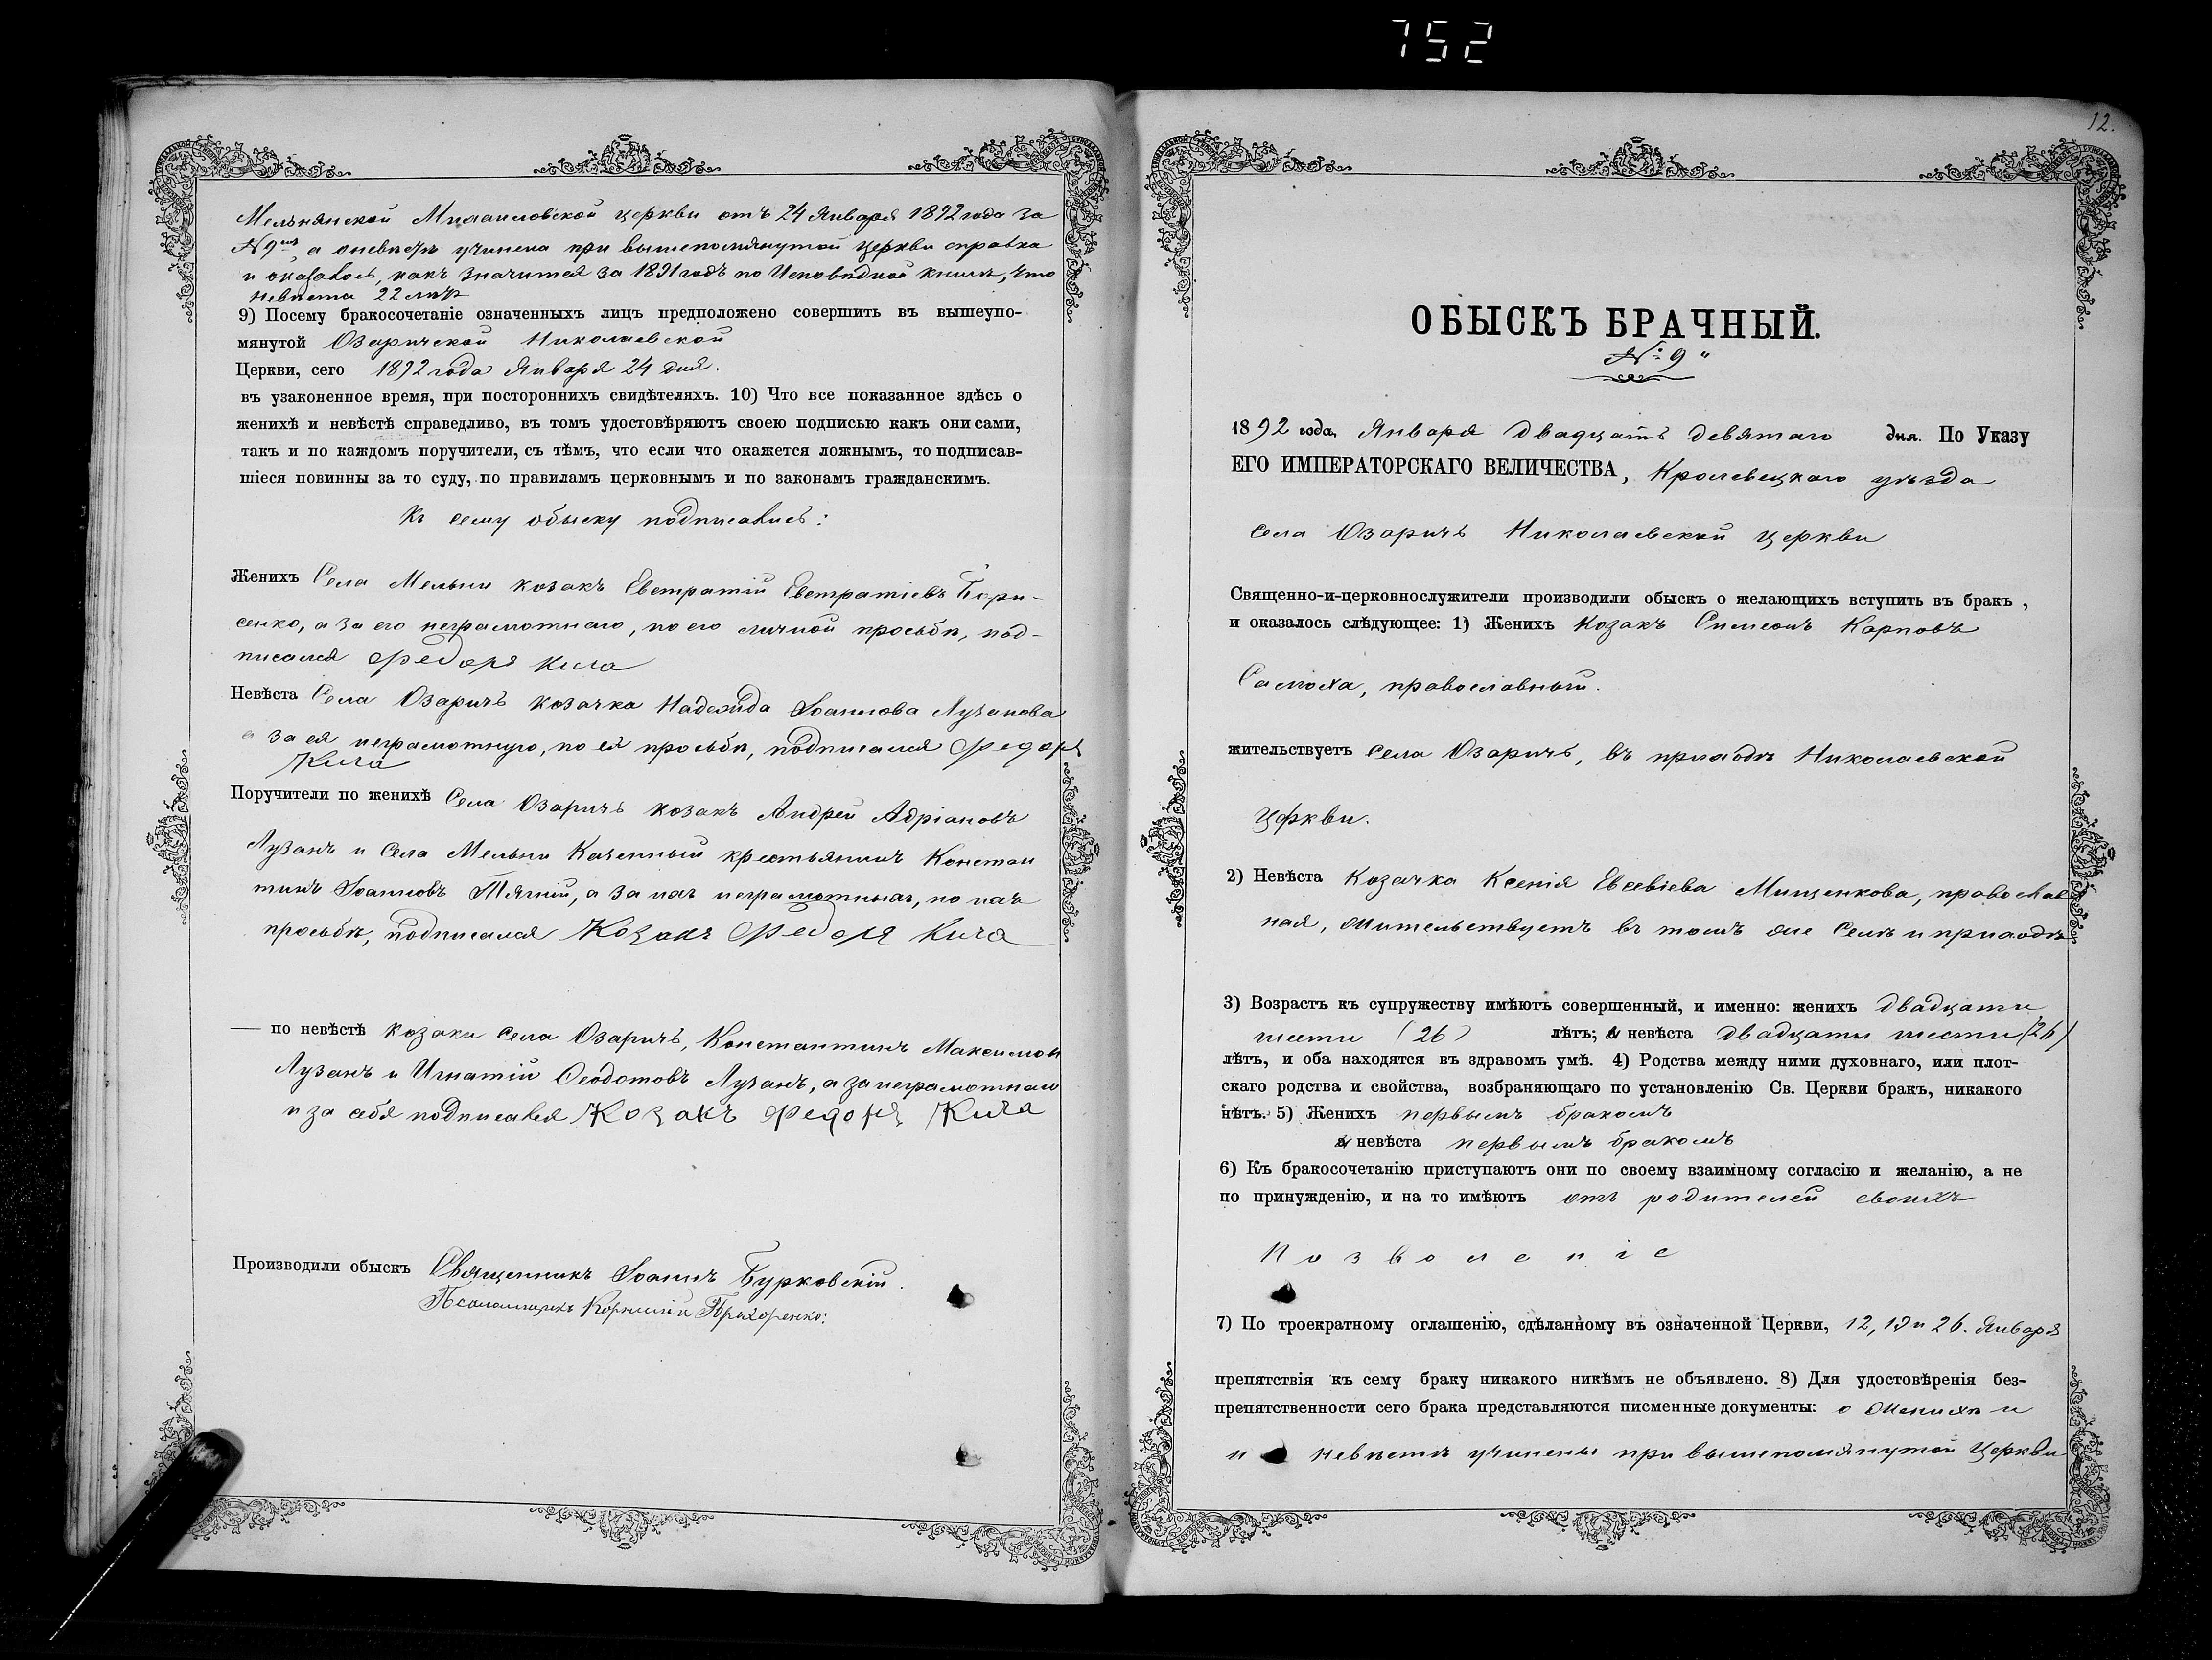 752
Мельнянской Михаиловской церкви отъ 24 Января 1892 года за
№ 9мъ, а о невѣстѣ учинена при вышепомянутой церкви справка
и оказалось, какъ значится за 1891 годъ по Исповѣдной книгѣ, что
невѣста 22 лѣтъ
9) Посему бракосочетаніе означенныхъ лицъ предположено совершить въ вышеупо-
мянутой Озаричской Николаевской
Церкви, сего 1892 года Января 24 дня.
въ узаконенное время, при постороннихъ свидѣтеляхъ. 10) Что все показанное здѣсь о
женихѣ и невѣстѣ справедливо, въ томъ удостовѣряютъ своею подписью какъ они сами,
такъ и по каждомъ поручители, съ тѣмъ, что если что окажется ложнымъ, то подписав-
шіеся повинны за то суду, по правиламъ церковнымъ и по законамъ гражданскимъ.
Къ сему обыску подписались:
Женихъ Села Мельни козакъ Евстратій Евстратіевъ Бори-
сенко, а за его неграмотнаго, по его личной просьбѣ, под-
писался Федоръ Кича
Невѣста Села Озаричъ козачка Надежда Іоаннова Лузанова
а за ея неграмотную, по ея просьбѣ, подписался Федоръ
Кича
Поручители по женихѣ Села Озаричъ козакъ Андрей Адріановъ
Лузанъ и Села Мельни Казенный крестьянинъ Констан
тинъ Іоанновъ Тягній, а за нихъ неграмотныхъ, по ихъ
просьбѣ, подписался Козакъ Федоръ Кича
— по невѣстѣ козаки села Озаричъ, Константинъ Максимовъ
Лузанъ и Игнатій Ѳеодотовъ Лузанъ, а за неграмотнаго
и за себя подписался Козакъ Федоръ Кича
Производили обыскъ Священникъ Іоаннъ Бурковскій.
Псаломщикъ Корнилій Прихоренко:
12.
ОБЫСКЪ БРАЧНЫЙ.
№ 9
1892 года, Января двадцать девятаго дня. По Указу
ЕГО ИМПЕРАТОРСКАГО ВЕЛИЧЕСТВА, Кролевецкаго уѣзда
села Озаричъ Николаевской церкви
Священно-и-церковнослужители производили обыскъ о желающихъ вступить въ бракъ,
и оказалось слѣдующее: 1) Женихъ Козакъ Симеонъ Карповъ
Самоха, православный.
жительствуетъ села Озаричъ, въ приходѣ Николаевской
Церкви.
2) Невѣста Козачка Ксенія Евсевіева Мищенкова, православ
ная, жительствуетъ въ томъ же селѣ и приходѣ
3) Возрастъ къ супружеству имѣютъ совершенный, и именно: женихъ двадцати
шести (26) лѣтъ; а невѣста двадцати шести (26)
лѣтъ, и оба находятся въ здравомъ умѣ. 4) Родства между ними духовнаго, или плот-
скаго родства и свойства, возбраняющаго по установленію Св. Церкви бракъ, никакого
нѣтъ. 5) Женихъ первымъ бракомъ
а невѣста первымъ бракомъ
6) Къ бракосочетанію приступаютъ они по своему взаимному согласію и желанію, а не
по принужденію, и на то имѣютъ отъ родителей своихъ
позволеніе
7) По троекратному оглашенію, сдѣланному въ означенной Церкви, 12, 19 и 26. Января
препятствія къ сему браку никакого никѣмъ не объявлено. 8) Для удостовѣренія без-
препятственности сего брака представляются писменные документы: о женихѣ и
и невѣстѣ учинены при вышепомянутой Церкви